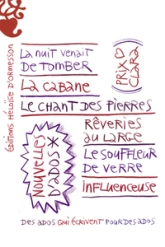 ÉDITIONS HÉLOÏSE D'ORMESSON
LA NUIT VENAIT
DE TOMBER
PRIX
CLARA
LA CABANE
LE CHANT DES PIERRES
RÊVERIES
AU LARGE
LE SOUFFLEUR
DE VERRE
INFLUENCEUSE
NOUVELLES
D'ADOS
DES ADOS QUI ÉCRIVENT POUR DES ADOS